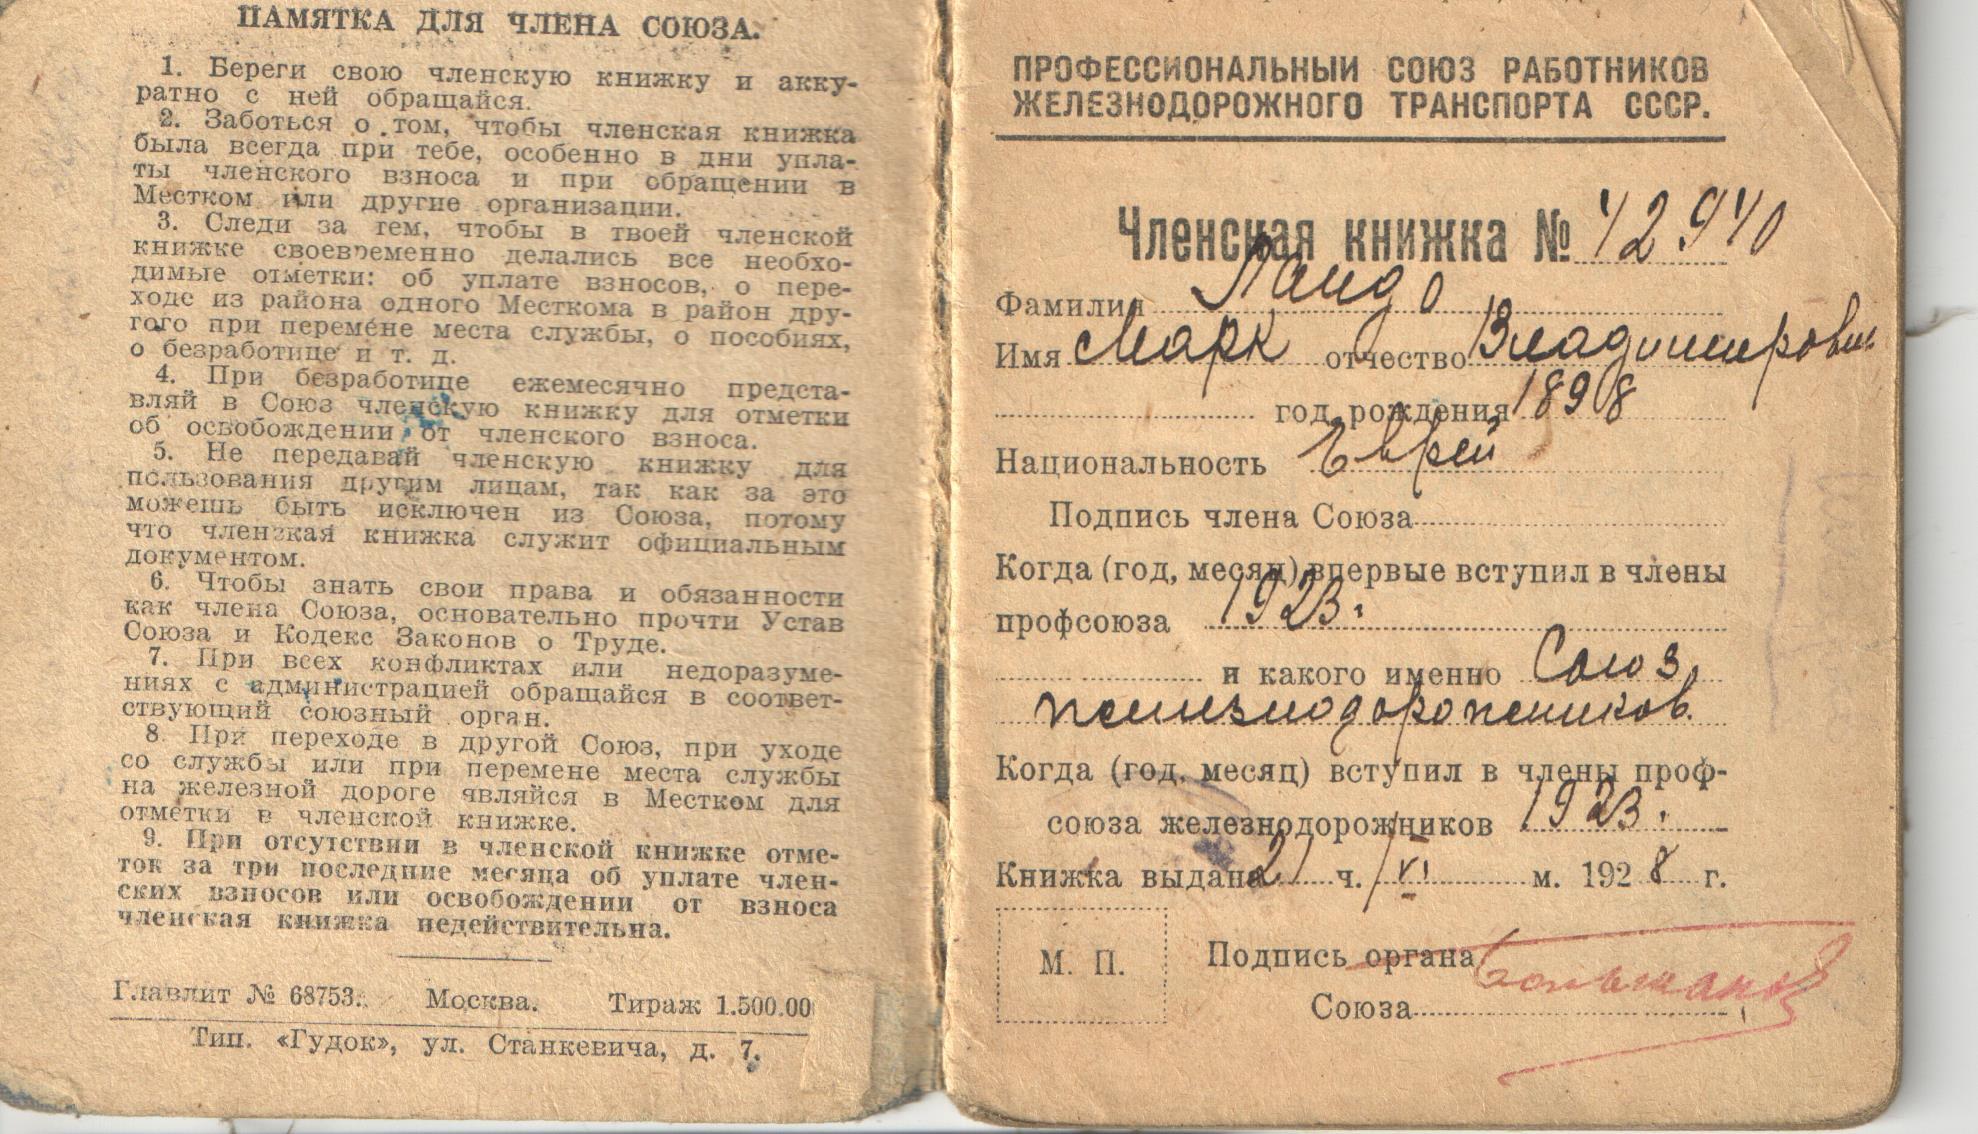 ПАМЯТКА ДЛЯ ЧЛЕНА СОЮЗА.
1. Береги свою членскую книжку и акку-
ратно с ней обращайся.
2. Заботься о том, чтобы членская книжка
была всегда при тебе, особенно в дни упла-
ты членского взноса и при обращении в
Местком или другие организации.
3. Следи за тем, чтобы в твоей членской
книжке своевременно делались все необхо-
димые отметки: об уплате взносов, о пере-
ходе из района одного Месткома в район дру-
гого при перемене места службы, о пособиях,
о безработице и т. д.
4. При безработице ежемесячно предста-
вляй в Союз членскую книжку для отметки
об освобождении от членского взноса.
5. Не передавай членскую книжку для
пользования другим лицам, так как за это
можешь быть исключен из Союза, потому
что членская книжка служит официальным
документом.
6. Чтобы знать свои права и обязанности
как члена Союза, основательно прочти Устав
Союза и Кодекс Законов о Труде.
7. При всех конфликтах или недоразуме-
ниях с администрацией обращайся в соответ-
ствующий союзный орган.
8. При переходе в другой Союз, при уходе
со службы или при перемене места службы
на железной дороге являйся в Местком для
отметки в членской книжке.
9. При отсутствии в членской книжке отме-
ток за три последние месяца об уплате член-
ских взносов или освобождении от взноса
членская книжка недействительна.
Главлит № 68753. Москва. Тираж 1.500.00
Тип. «Гудок», ул. Станкевича, д. 7.
ПРОФЕССИОНАЛЬНЫЙ СОЮЗ РАБОТНИКОВ
ЖЕЛЕЗНОДОРОЖНОГО ТРАНСПОРТА СССР.
Членская книжка № 42940
Фамилия Ландо
Имя Марк отчество Владимирович
год рождения 1898
Национальность Еврей
Подпись члена Союза
Когда (год, месяц) впервые вступил в члены
профсоюза 1923 г.
и какого именно Союз
железнодорожников.
Когда (год, месяц) вступил в члены проф-
союза железнодорожников 1923 г.
Книжка выдана 21 ч. VI м. 1928 г.
М. П. Подпись органа
Союза